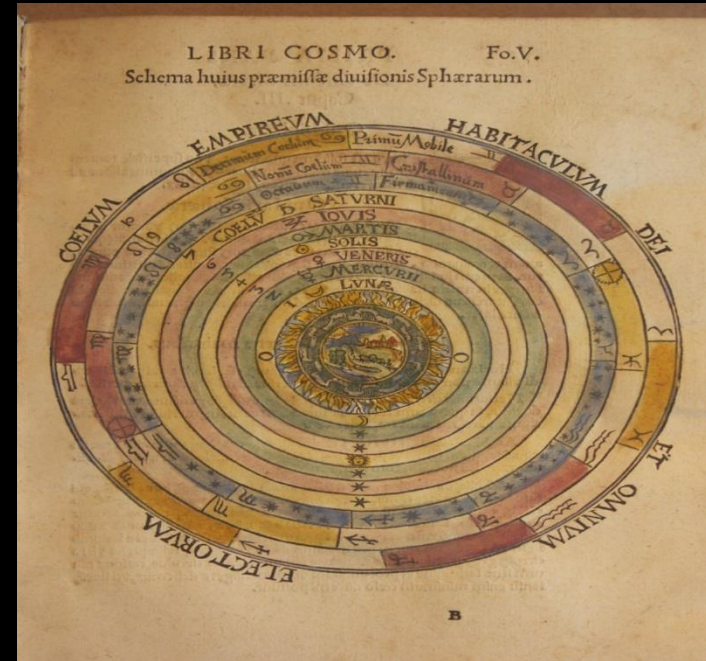 LIBRI COSMO. Fo.V.
Schema huius præmissæ diuisionis Sphærarum.
COELUM EMPIREVM HABITACULVM DEI ET OMNIVM ELECTORVM
Decimum Coelum Primũ Mobile
Nonũ Coelum Cristallinum
Octauum Firmamentum
COELV SATURNI
IOVIS
MARTIS
SOLIS
VENERIS
MERCVRII
LVNÆ
7
6
4
3
2
1
8
9
B